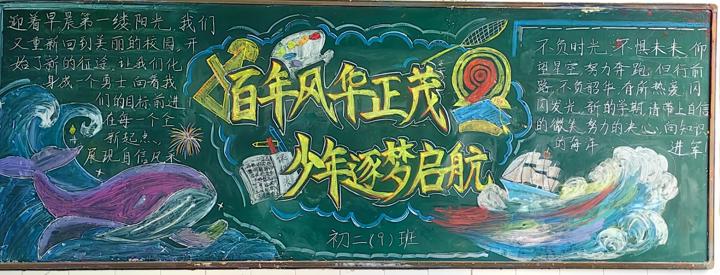 迎着早晨第一缕阳光,我们
又重新回到美丽的校园,开
始了新的征途,让我们化
身成一个勇士向着我
们的目标前进
在每一个全
新起点,
展现自信风采
百年风华正茂
少年逐梦启航
初二(9)班
不负时光,不惧未来,仰
望星空,努力奔跑,但行前
路,不负韶华,有所热爱,闪
闪发光,新的学期,请带上自信
的微笑,努力的决心,向知识
的海洋 进军